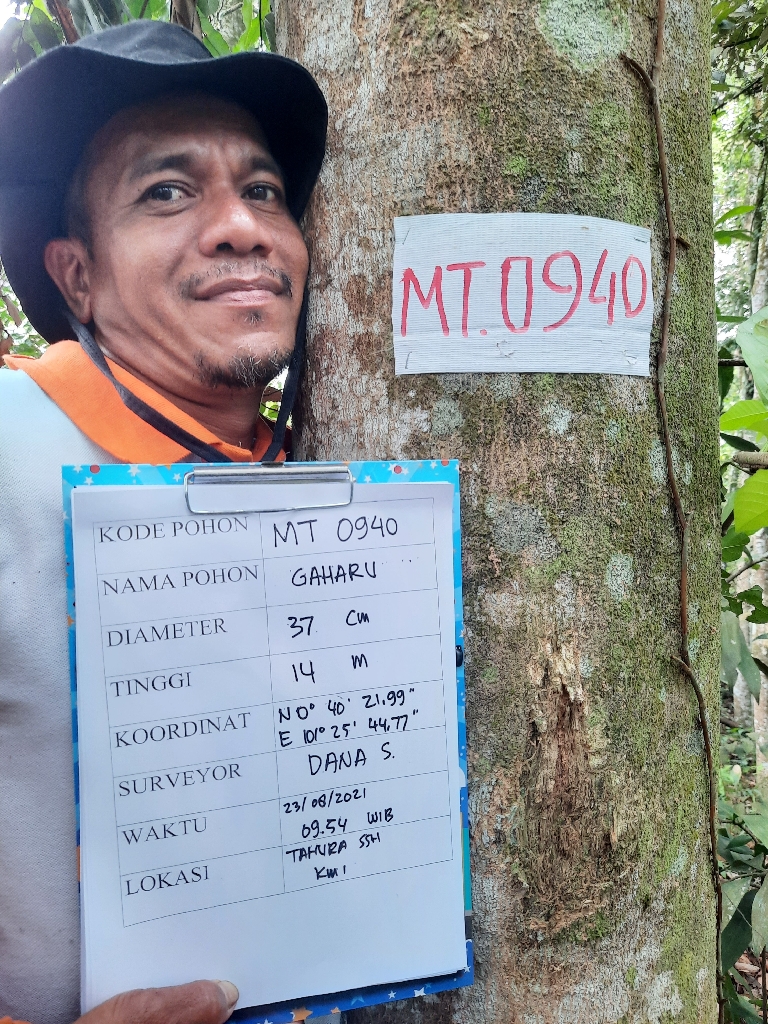 MT.0940
KODE POHON MT 0940
NAMA POHON GAHARU
DIAMETER 37 Cm
TINGGI 14 m
KOORDINAT N 0° 40' 21.99"
E 101° 25' 44.77"
SURVEYOR DANA S.
WAKTU 23/08/2021
09.54 WIB
LOKASI TAHURA SSH
KM 1